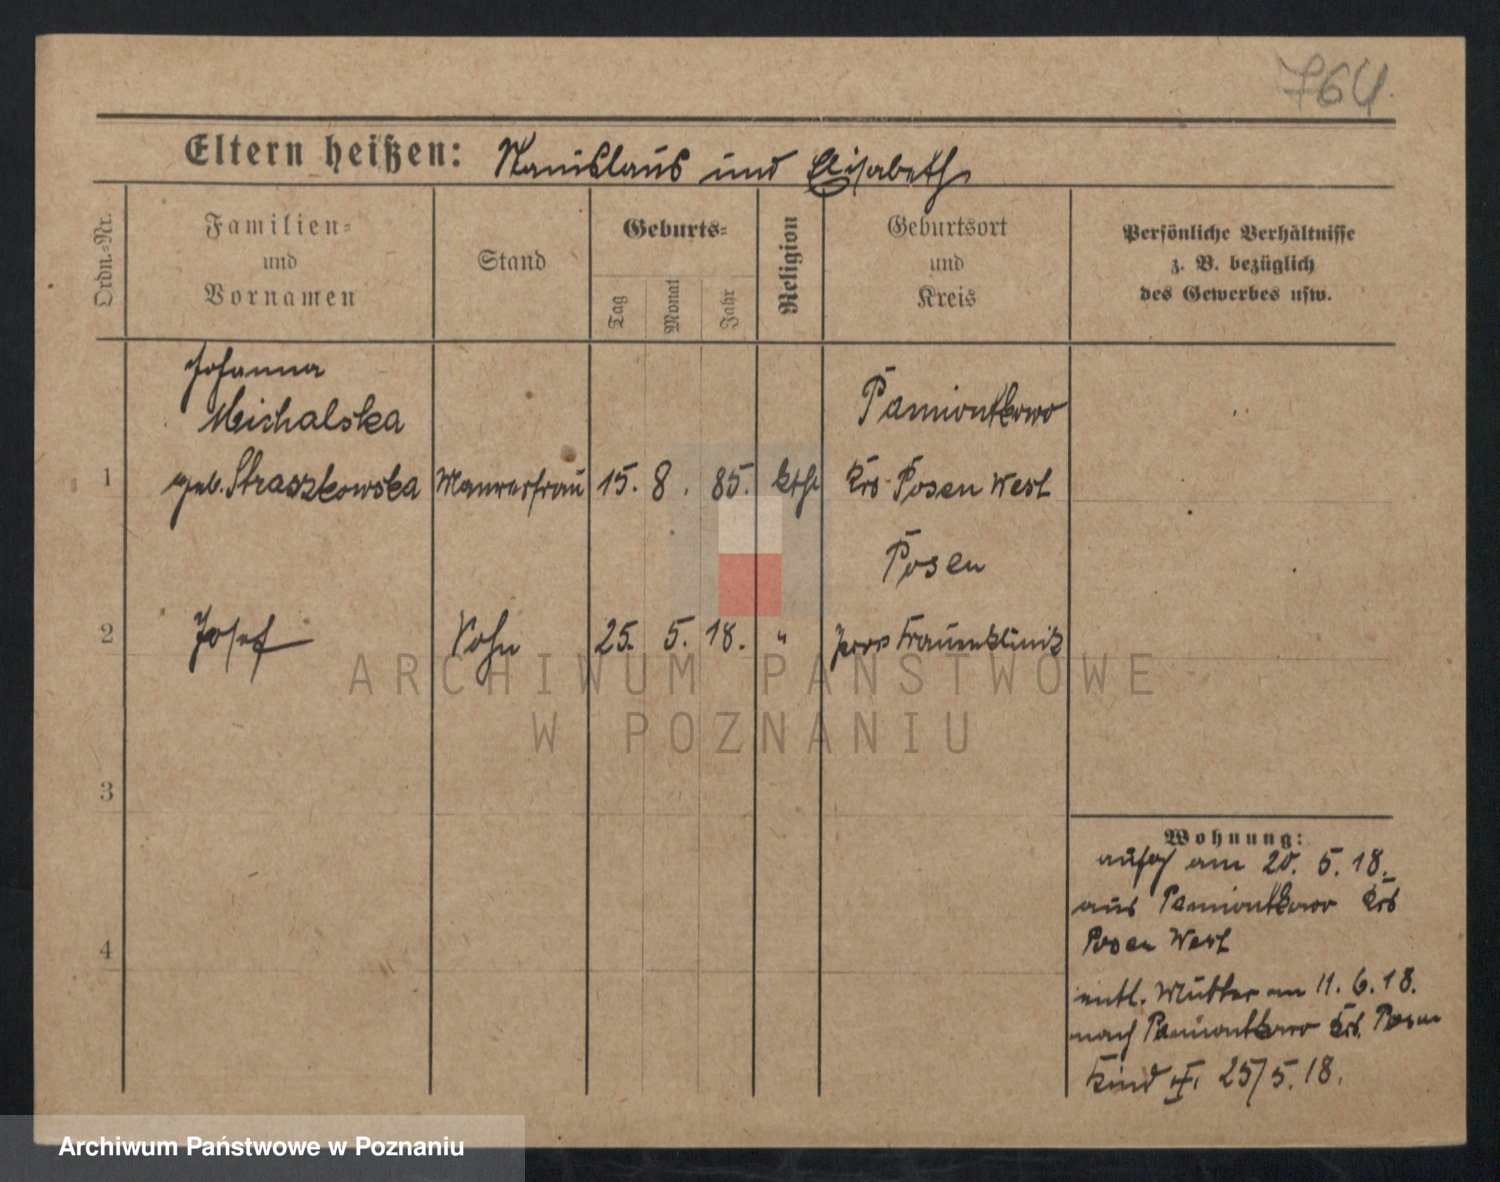 764.
Eltern heißen: Stanislaus und Elisabeth
Ordn.-Nr.
Familien- und Vornamen
Stand
Geburts-
Tag
Monat
Jahr
Religion
Geburtsort und Kreis
Persönliche Verhältnisse z. B. bezüglich des Gewerbes usw.
Johanna
Michalska
Pamiontkowo
1 geb. Straszkowska Maurerfrau 15. 8. 85. kth Krs Posen West
Posen
2 Josef Sohn 25. 5. 18. " Frauenklinik
3
Wohnung:
am 20. 5. 18.
aus Pamiontkowo Krs
Posen West
4
entl. Mutter am 11. 6. 18.
nach Pamiontkowo Krs. Posen
Kind 25/5. 18.
ARCHIWUM PAŃSTWOWE
W POZNANIU
Archiwum Państwowe w Poznaniu